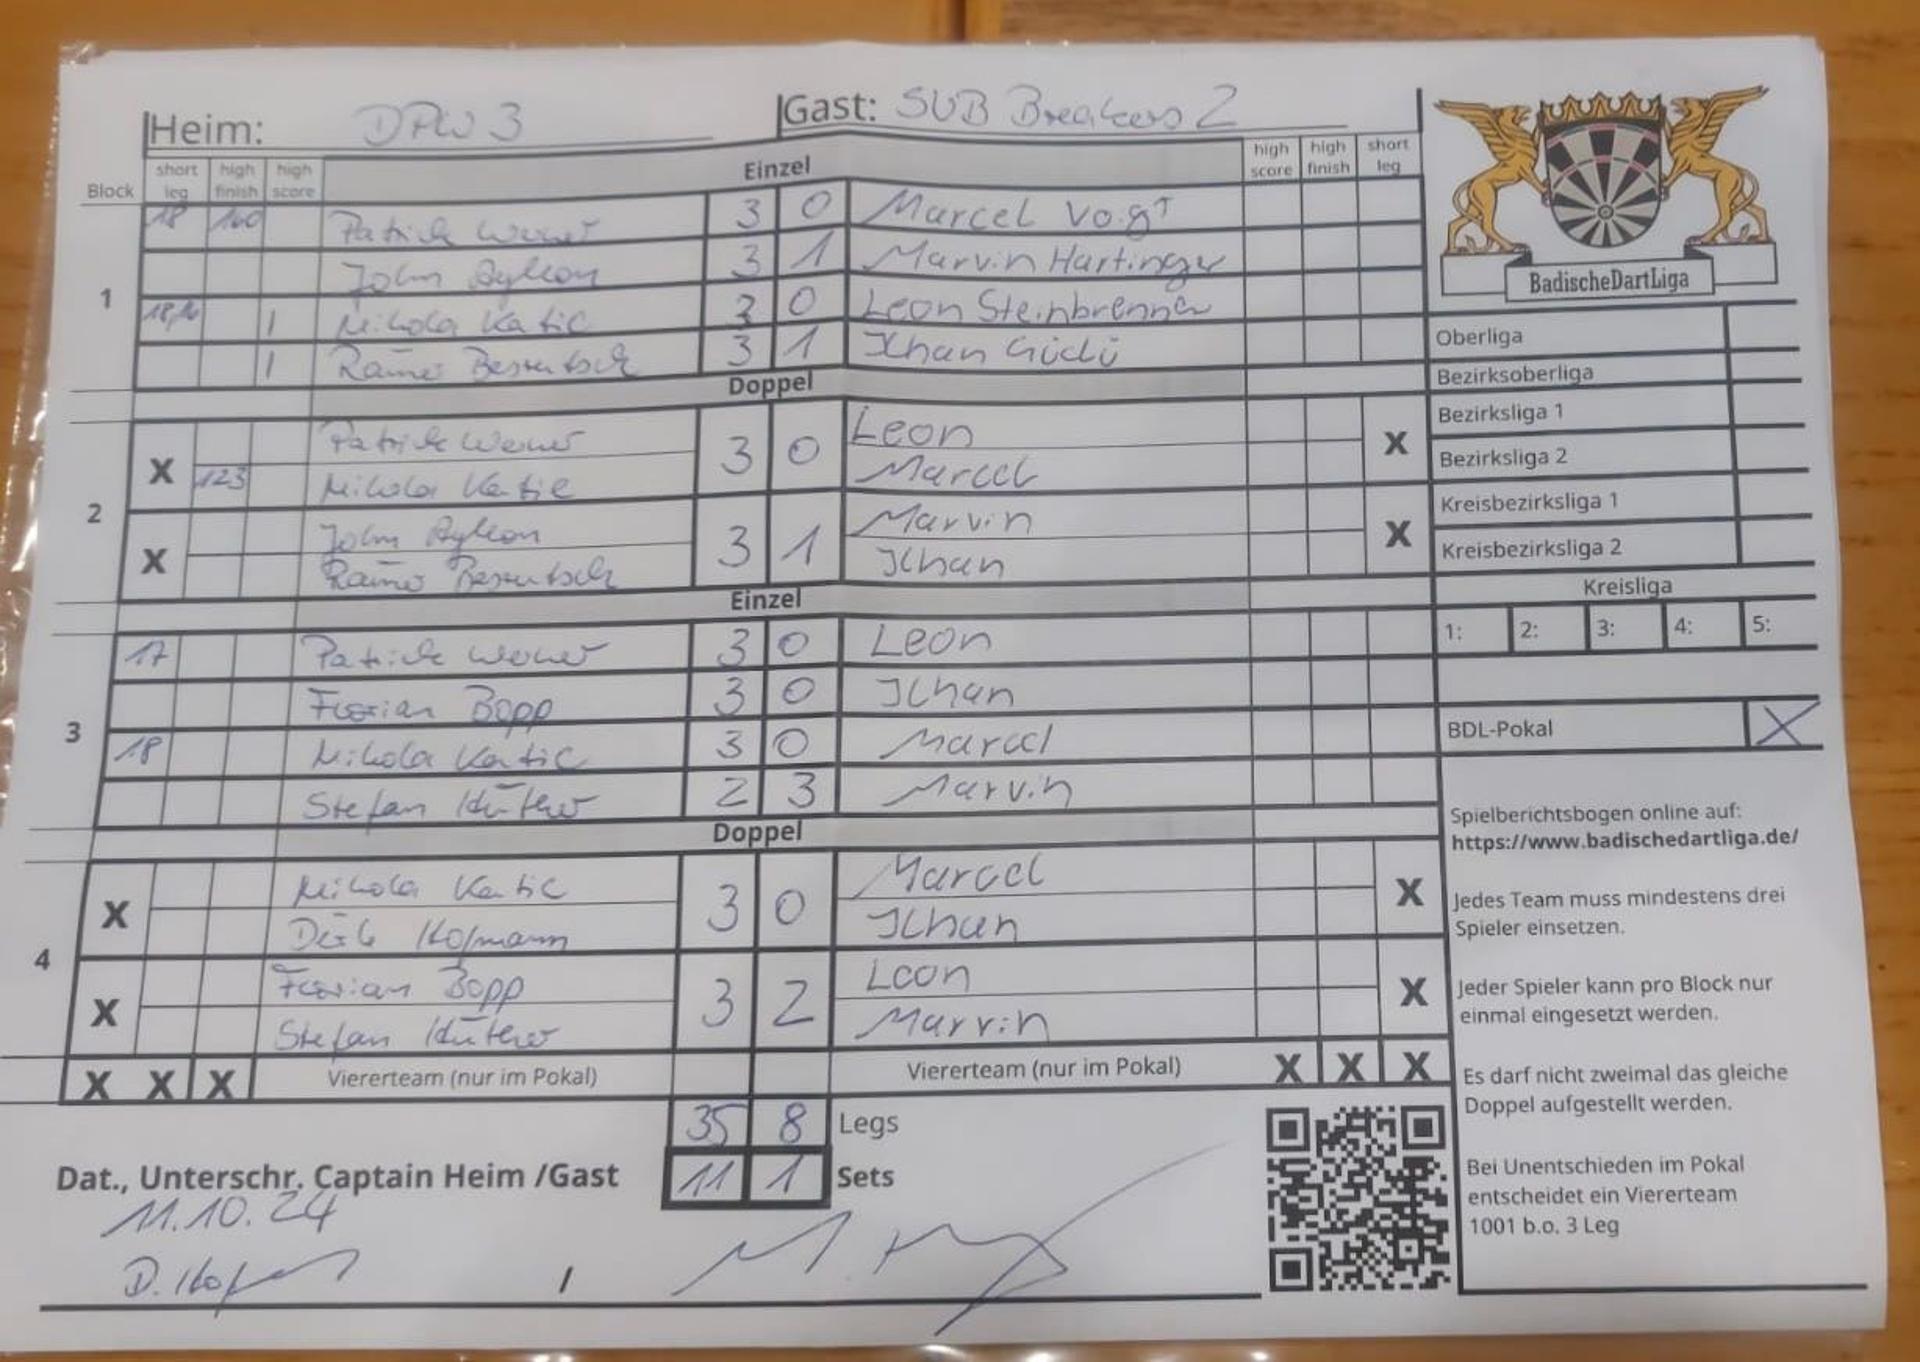 Heim: DPW 3 Gast: SUB Breakers 2
Block short leg high finish high score Einzel high score high finish short leg
18 160 Patrick 3 0 Marcel Voigt
John 3 1 Marvin Hartinger
1 18, 1 Nikola Katic 3 0 Leon Steinbrenner
1 3 1 Ilhan Güclü
Doppel
Patrick 3 0 Leon
X 123 Nikola Katic Marcel X
2 John 3 1 Marvin
X Ilhan X
Einzel
17 Patrick 3 0 Leon
Florian Bopp 3 0 Ilhan
3 18 Nikola Katic 3 0 Marcel
Stefan 2 3 Marvin
Doppel
X Nikola Katic 3 0 Marcel X
Dirk Hofmann Ilhan
4 Florian Bopp 3 2 Leon
X Stefan Marvin X
X X X Viererteam (nur im Pokal) Viererteam (nur im Pokal) X X X
35 8 Legs
11 1 Sets
Dat., Unterschr. Captain Heim /Gast
11.10.24
/
BadischeDartLiga
Oberliga
Bezirksoberliga
Bezirksliga 1
Bezirksliga 2
Kreisbezirksliga 1
Kreisbezirksliga 2
Kreisliga
1: 2: 3: 4: 5:
BDL-Pokal X
Spielberichtsbogen online auf:
https://www.badischedartliga.de/
Jedes Team muss mindestens drei
Spieler einsetzen.
Jeder Spieler kann pro Block nur
einmal eingesetzt werden.
Es darf nicht zweimal das gleiche
Doppel aufgestellt werden.
Bei Unentschieden im Pokal
entscheidet ein Viererteam
1001 b.o. 3 Leg